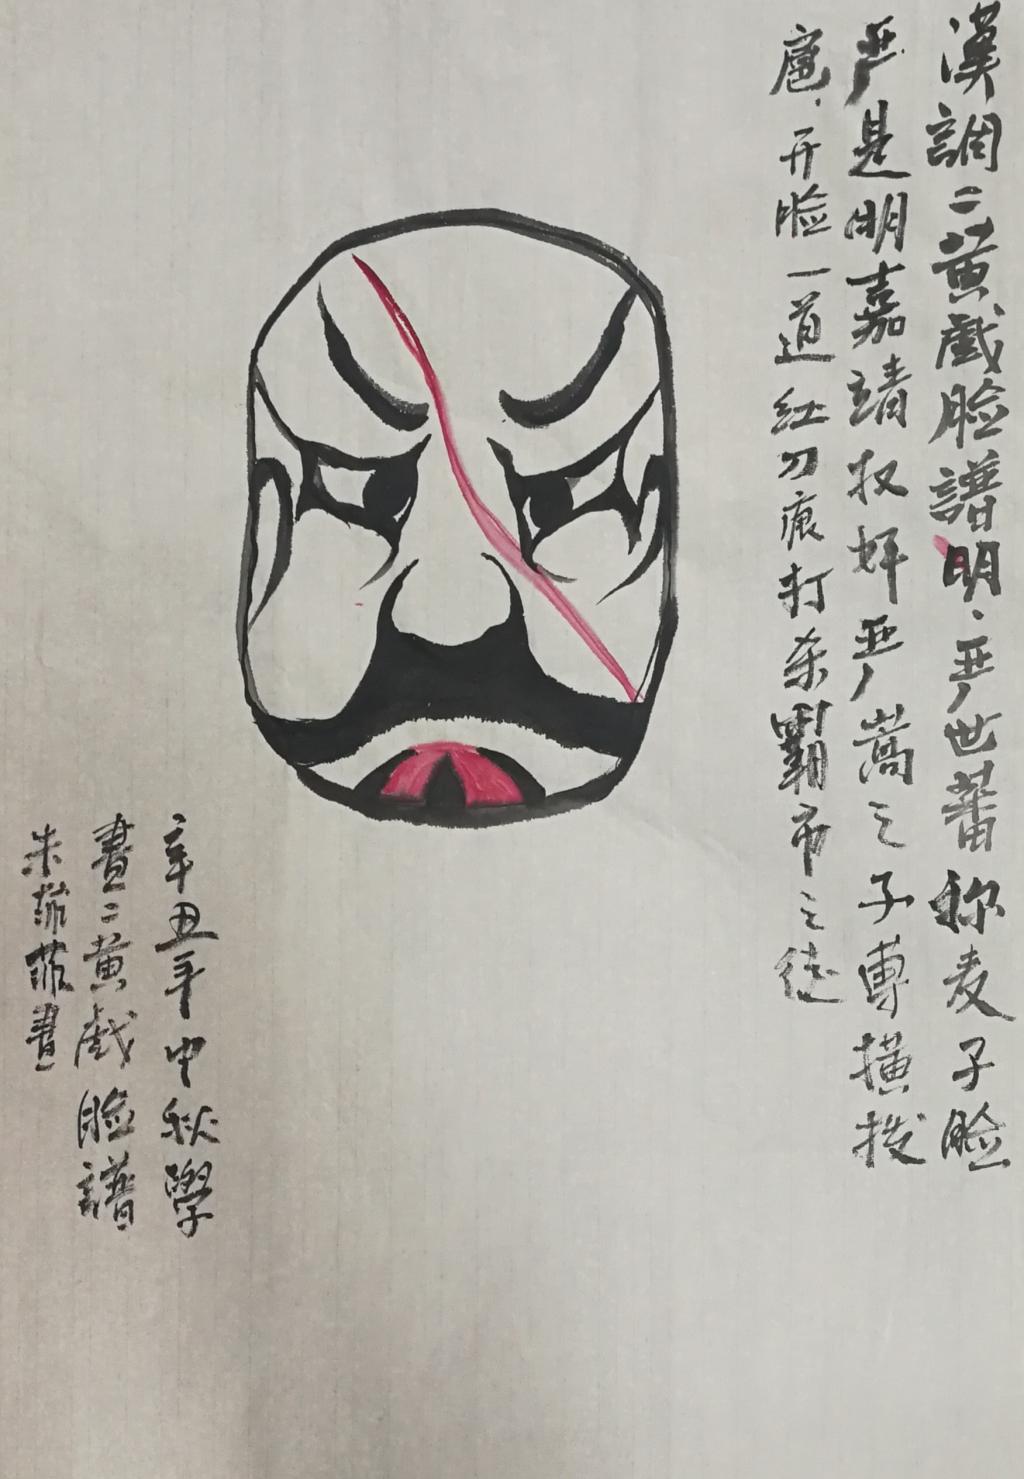 漢調二黄戲脸譜明、严世蕃称麦子脸
严是明嘉靖权奸严嵩之子專横拨
扈、开脸一道红刀痕打杀霸市之徒
辛丑年中秋學
畫二黄戲脸譜
朱菲菲畫